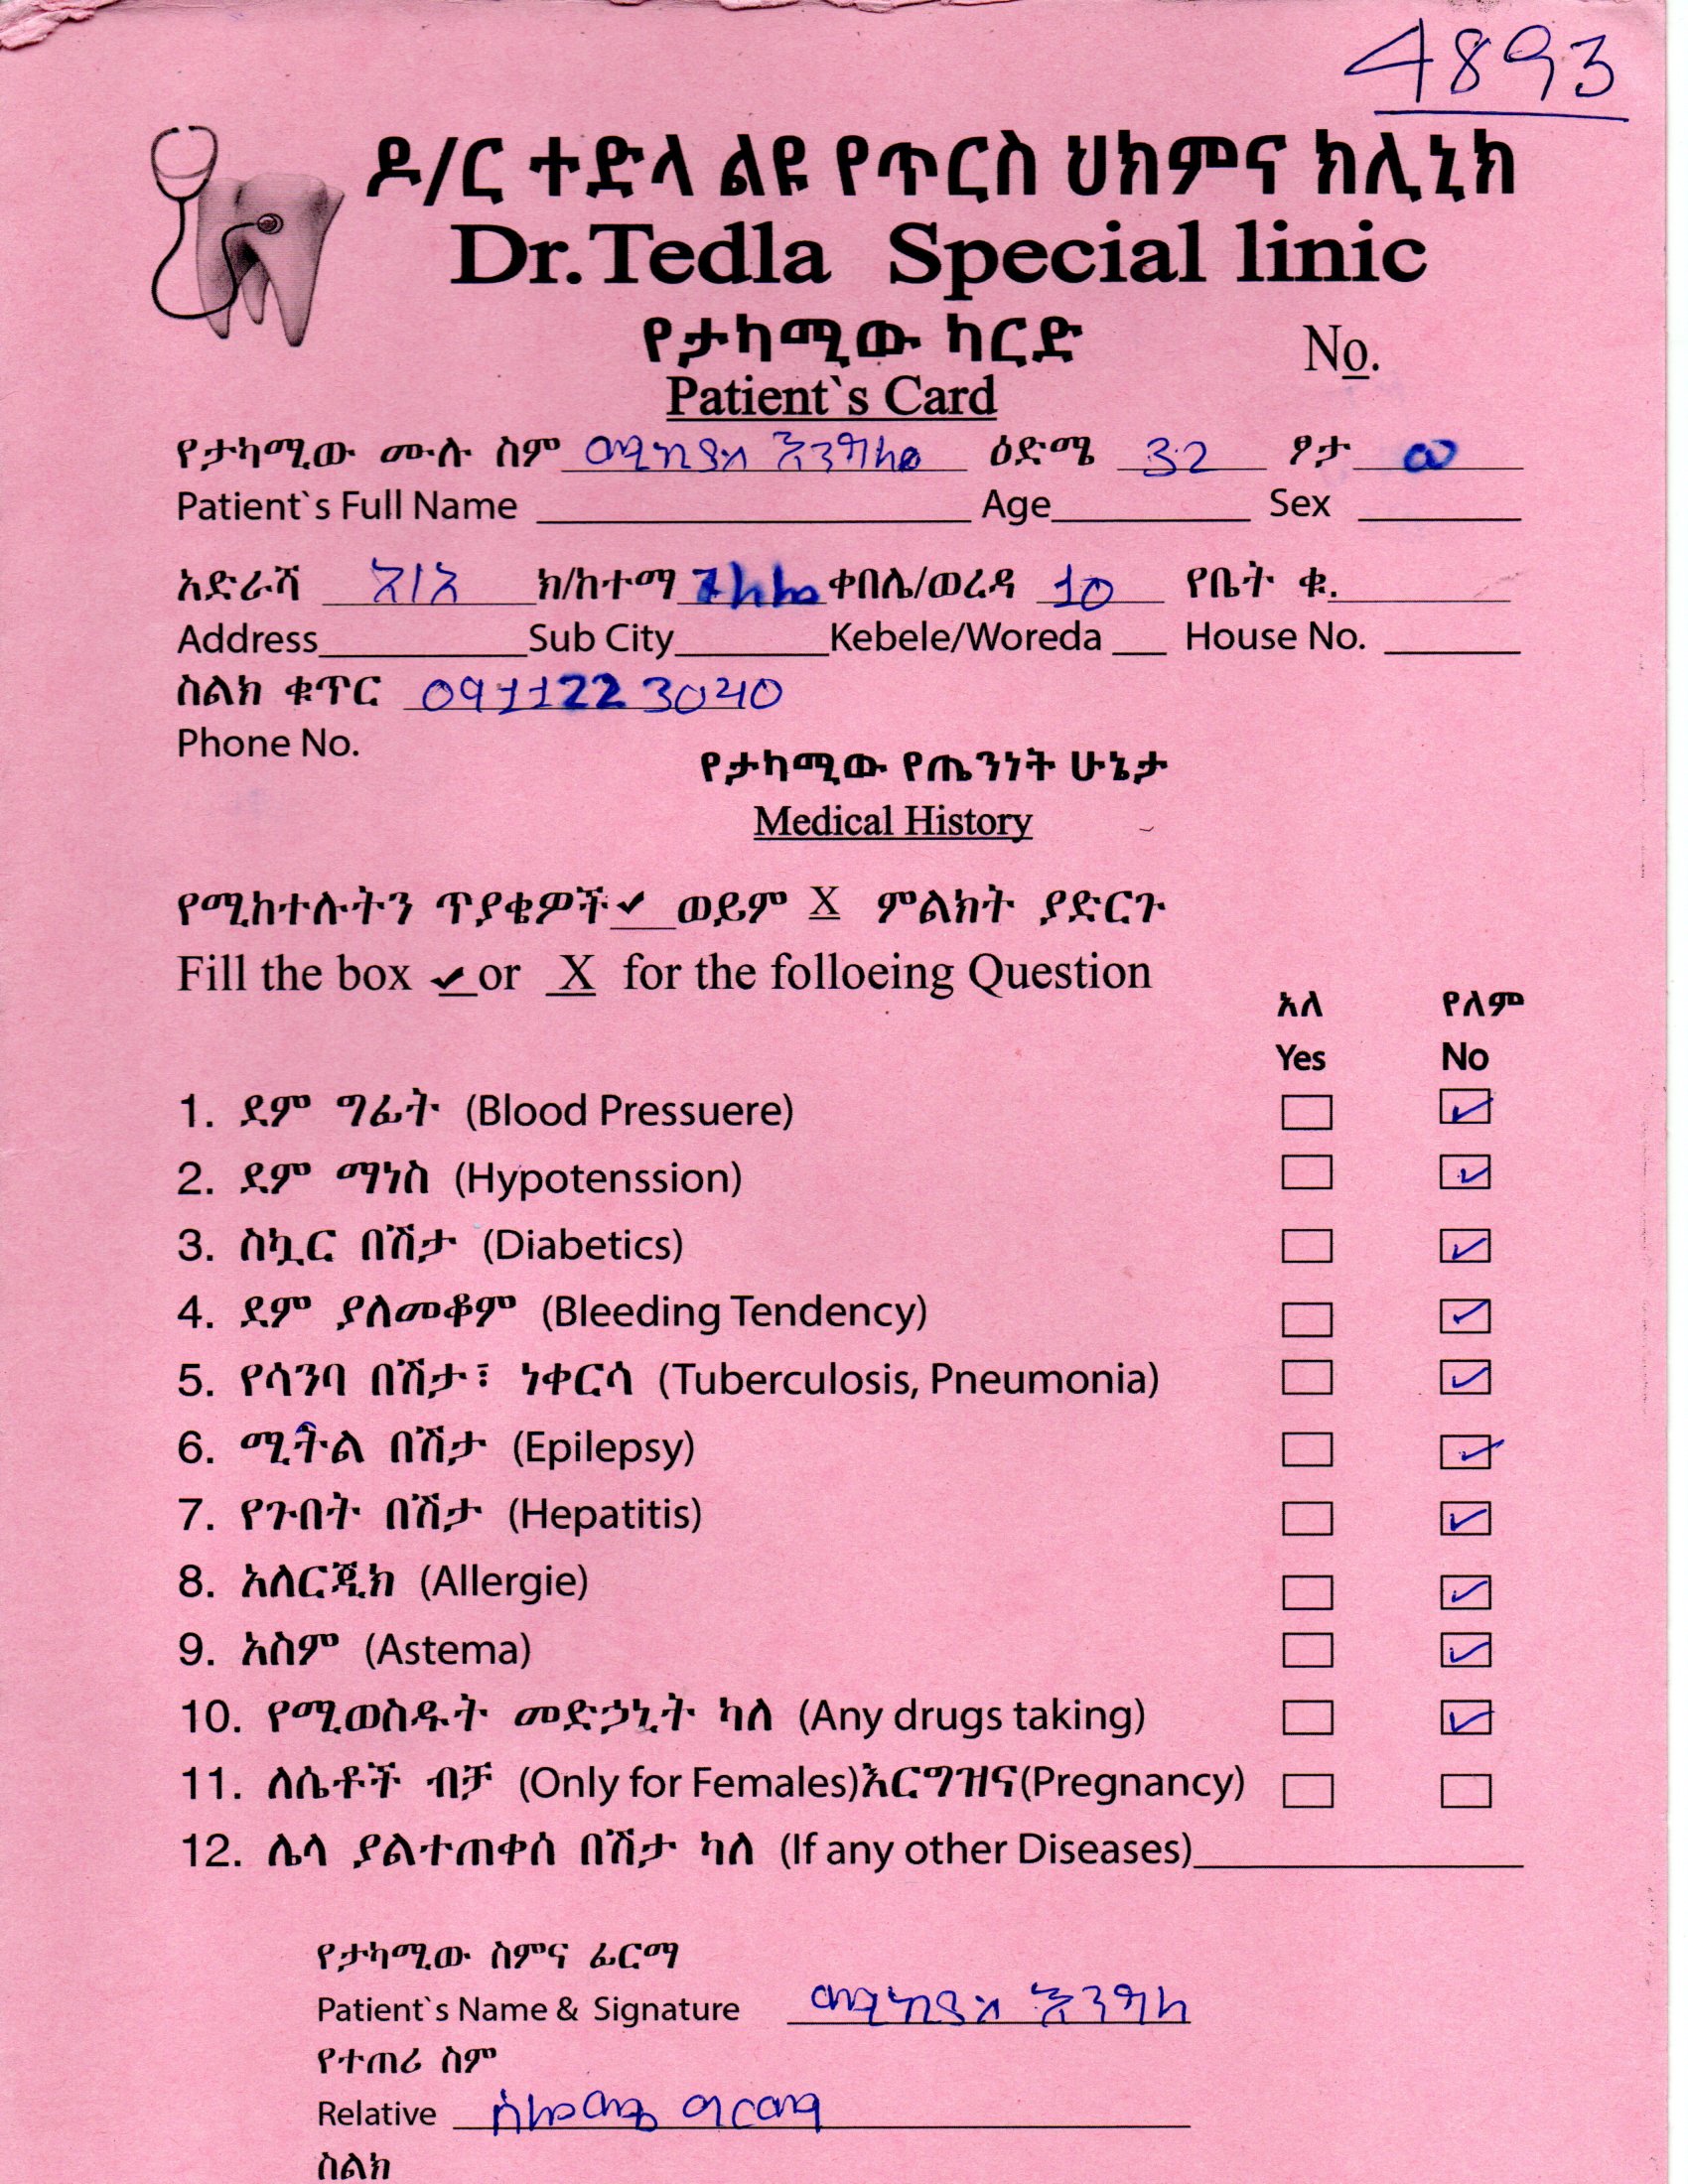 4893
ዶ/ር ተድላ ልዩ የጥርስ ህክምና ክሊኒክ
Dr. Tedla Special linic
የታካሚው ካርድ
No.
Patient`s Card
የታካሚው ሙሉ ስም ዕድሜ 32 ፆታ ወ
Patient`s Full Name Age Sex
አድራሻ አ/አ ክ/ከተማ ቀበሌ/ወረዳ 10 የቤት ቁ.
Address Sub City Kebele/Woreda House No.
ስልክ ቁጥር 0911223040
Phone No.
የታካሚው የጤንነት ሁኔታ
Medical History
የሚከተሉትን ጥያቄዎች ✓ ወይም X ምልክት ያድርጉ
Fill the box ✓ or X for the folloeing Question
አለ የለም
Yes No
1. ደም ግፊት (Blood Pressuere) ✓
2. ደም ማነስ (Hypotenssion) ✓
3. ስኳር በሽታ (Diabetics) ✓
4. ደም ያለመቆም (Bleeding Tendency) ✓
5. የሳንባ በሽታ፣ ነቀርሳ (Tuberculosis, Pneumonia) ✓
6. ሚትል በሽታ (Epilepsy) ✓
7. የጉበት በሽታ (Hepatitis) ✓
8. አለርጂክ (Allergie) ✓
9. አስም (Astema) ✓
10. የሚወስዱት መድኃኒት ካለ (Any drugs taking) ✓
11. ለሴቶች ብቻ (Only for Females)እርግዝና(Pregnancy)
12. ሌላ ያልተጠቀሰ በሽታ ካለ (If any other Diseases)
የታካሚው ስምና ፊርማ
Patient`s Name & Signature
የተጠሪ ስም
Relative
ስልክ